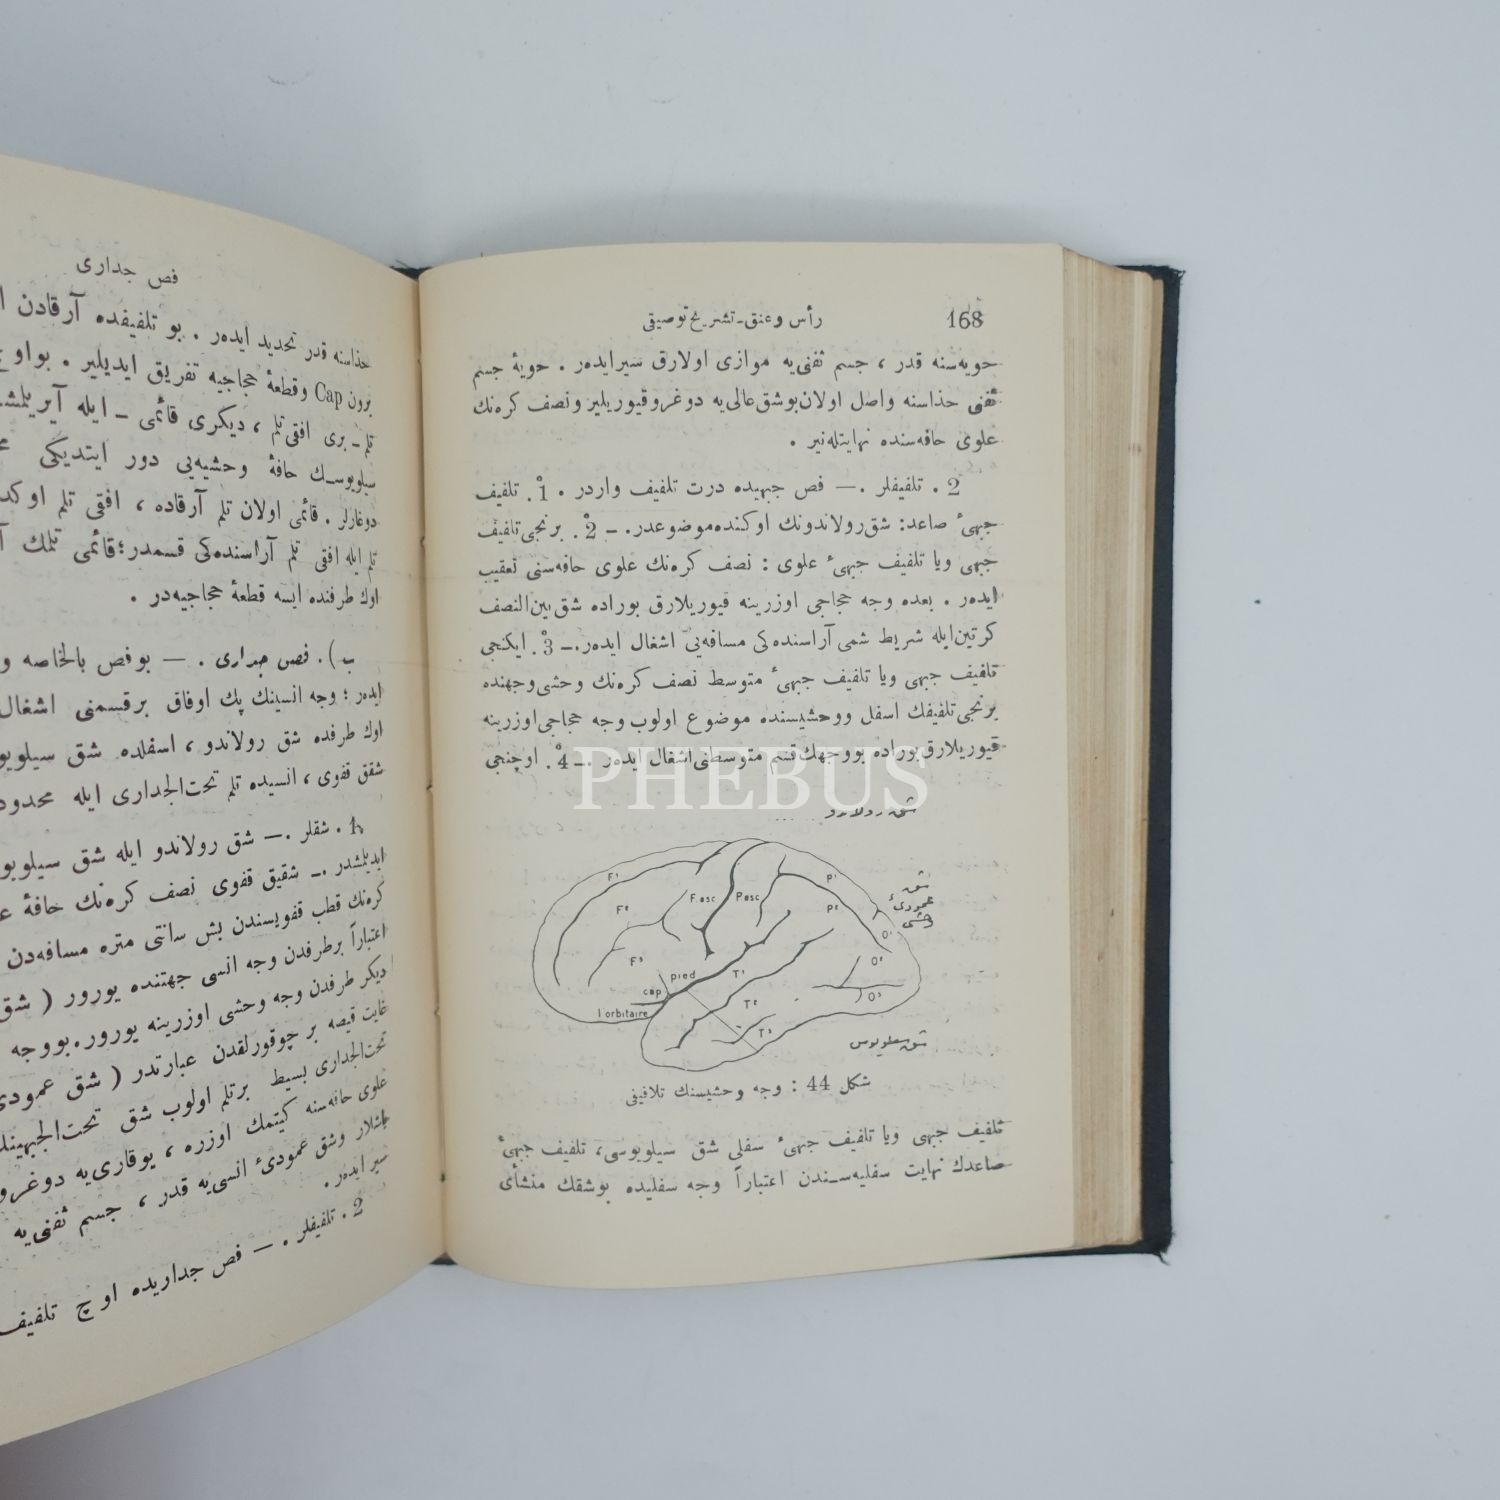 168
رأس وعنق ـ تشریح توصیفی
حویه‌سنه قدر ، جسم ثفنی‌یه موازی اولارق سیرایده‌ر . حویهٔ جسم
ثفنی حذاسنه واصل اولان‌بوشق‌عالی‌یه دوغروقیوریلیر ونصف کره‌نك
علوی حافه‌سنده نهایتله‌نیر .
2 . تلفیفلر .— فص جبهیده درت تلفیف واردر . 1ْ. تلفیف
جبهیٔ صاعد: شق‌رولاندونك اوکنده‌موضوعدر. – 2ْ. برنجی‌تلفیف
جبهی ویا تلفیف جبهیٔ علوی : نصف کره‌نك علوی حافه‌سنی تعقیب
ایده‌ر . بعده وجه حجاجی اوزرینه قیوریلارق بوراده شق‌بین‌النصف
کرتین‌ایله شریط شمی آراسنده‌کی مسافه‌یی اشغال ایده‌ر.– 3ْ. ایکنجی
تلفیف جبهی ویا تلفیف جبهیٔ متوسط نصف کره‌نك وحشی‌وجهنده
برنجی‌تلفیفك اسفل ووحشیسنده موضوع اولوب وجه حجاجی‌اوزرینه
قیوریلارق‌بوراده بووجهك‌قسم متوسطنی‌اشغال ایده‌ر .– 4ْ. اوچنجی
PHEBUS
شق رولاندو
F¹
F²
F³
F.asc
Pasc
P¹
P²
شق
عمودیٔ
وحشی
O¹
O²
O³
pied
cap
l'orbitaire
T¹
T²
T³
شق سیلویوس
شکل 44 : وجه وحشینك تلافیفی
تلفیف جبهی ویا تلفیف جبهیٔ سفلی شق سیلویوسی، تلفیف جبهیٔ
صاعدك نهایت سفلیه‌سـندن اعتباراً وجه سفلیده بوشقك منشأی
فص جداری
حذاسنه قدر تحدید ایده‌ر . بو تلفیفده آرقادن
برون Cap وقطعهٔ حجاجیه تفریق ایدیلیر .
تلم ـ بری افقی تلم ، دیکری قائمی ـ ایله
سیلویوسـك حافهٔ وحشیه‌یی دور ایتدیکی
دوغارلر . قائمی اولان تلم آرقاده ، افقی تلم
تلم ایله افقی تلم آراسنده‌کی قسمدر؛قائمی تلمك
اوك طرفنده ایسه قطعهٔ حجاجیه‌در .
ب) . فص جداری . — بوفص بالخاصه
ایده‌ر ؛ وجه انسینك پك اوفاق برقسمنی
اوك طرفده شق رولاندو ، اسفلده شق
شقق قفوی ، انسیده تلم تحت‌الجداری ایله
1. شقلر .— شق رولاندو ایله شق
ایدیلمشدر .– شقیق قفوی نصف کره‌نك حافهٔ
کره‌نك قطب قفویسندن بش سانتی متره مسافه‌دن
اعتباراً برطرفدن وجه انسی جهتنده یورور (
دیکر طرفدن وجه وحشی اوزرینه یورور.بووجه
غایت قیصه بر چوقورلقدن عبارتدر ( شق
تحت‌الجداری بسیط برتلم اولوب شق
علوی حافه‌سنه کیتمك اوزره ، یوقاری‌یه
باشلار وشق عمودیٔ انسی‌یه قدر ، جسم ثفنی‌یه
سیر ایده‌ر .
2 . تلفیفلر . — فص جداریده اوچ تلفیف